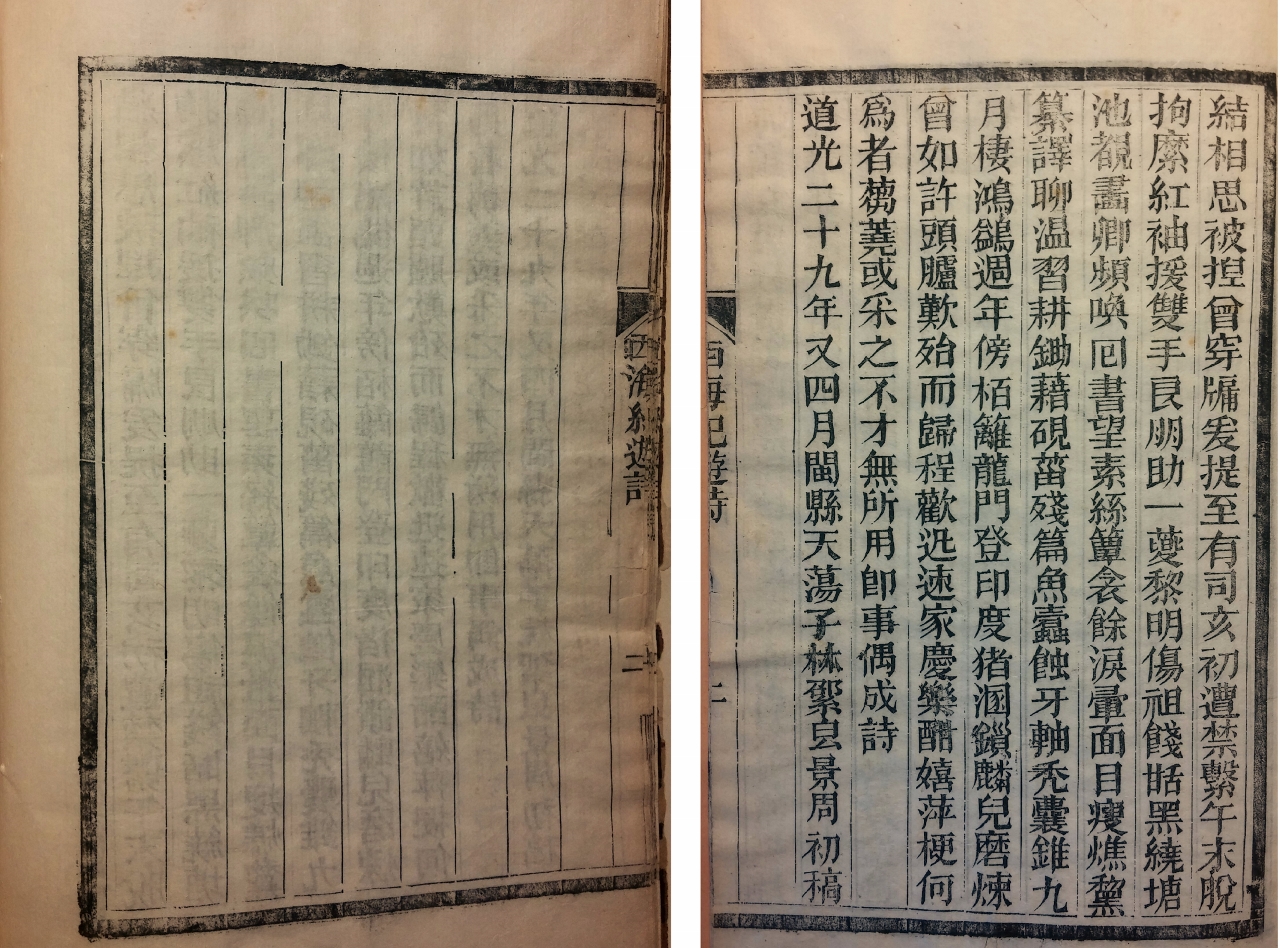 結相思被揑曾穿牖爰提至有司亥初遭禁繫午末脫
拘縻紅袖援雙手良朋助一夔黎明傷祖餞甛黑繞塘
池覩畫卿頻喚囘書望素絲簟衾餘淚暈面目瘦燋黧
纂譯聊温習耕鋤藉硯菑殘篇魚蠹蝕牙軸禿囊錐九
月棲鴻鷁週年傍栢籬龍門登印度猪溷鎖麟兒磨煉
曾如許頭臚歎殆而歸程歡迅速家慶樂酣嬉萍梗何
爲者蒭蕘或采之不才無所用卽事偶成詩
道光二十九年又四月閩縣天蕩子林景周初稿
西海紀遊詩
西海紀遊詩
二